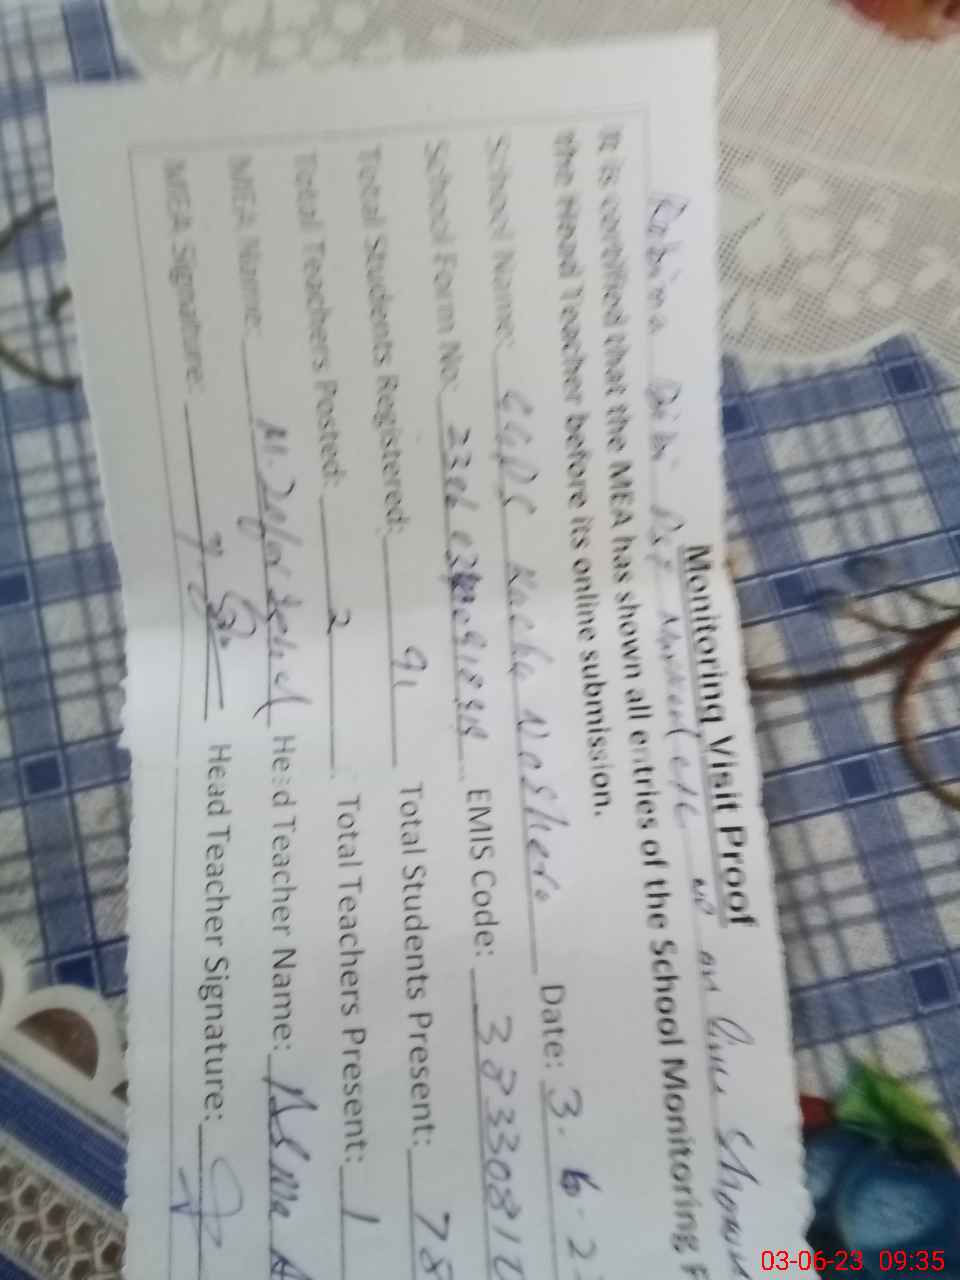 Monitoring Visit Proof
Robina Bibi
It is certified that the MEA has shown all entries of the School Monitoring F
the Head Teacher before its online submission.
School Name: GGPS Kacha Nashera Date: 3.6.2
School Form No: EMIS Code: 38330812
Total Students Registered: 91 Total Students Present: 78
Total Teachers Posted: 2. Total Teachers Present: 1
MEA Name: Head Teacher Name: Asma A
MEA Signature: Head Teacher Signature:
03-06-23 09:35